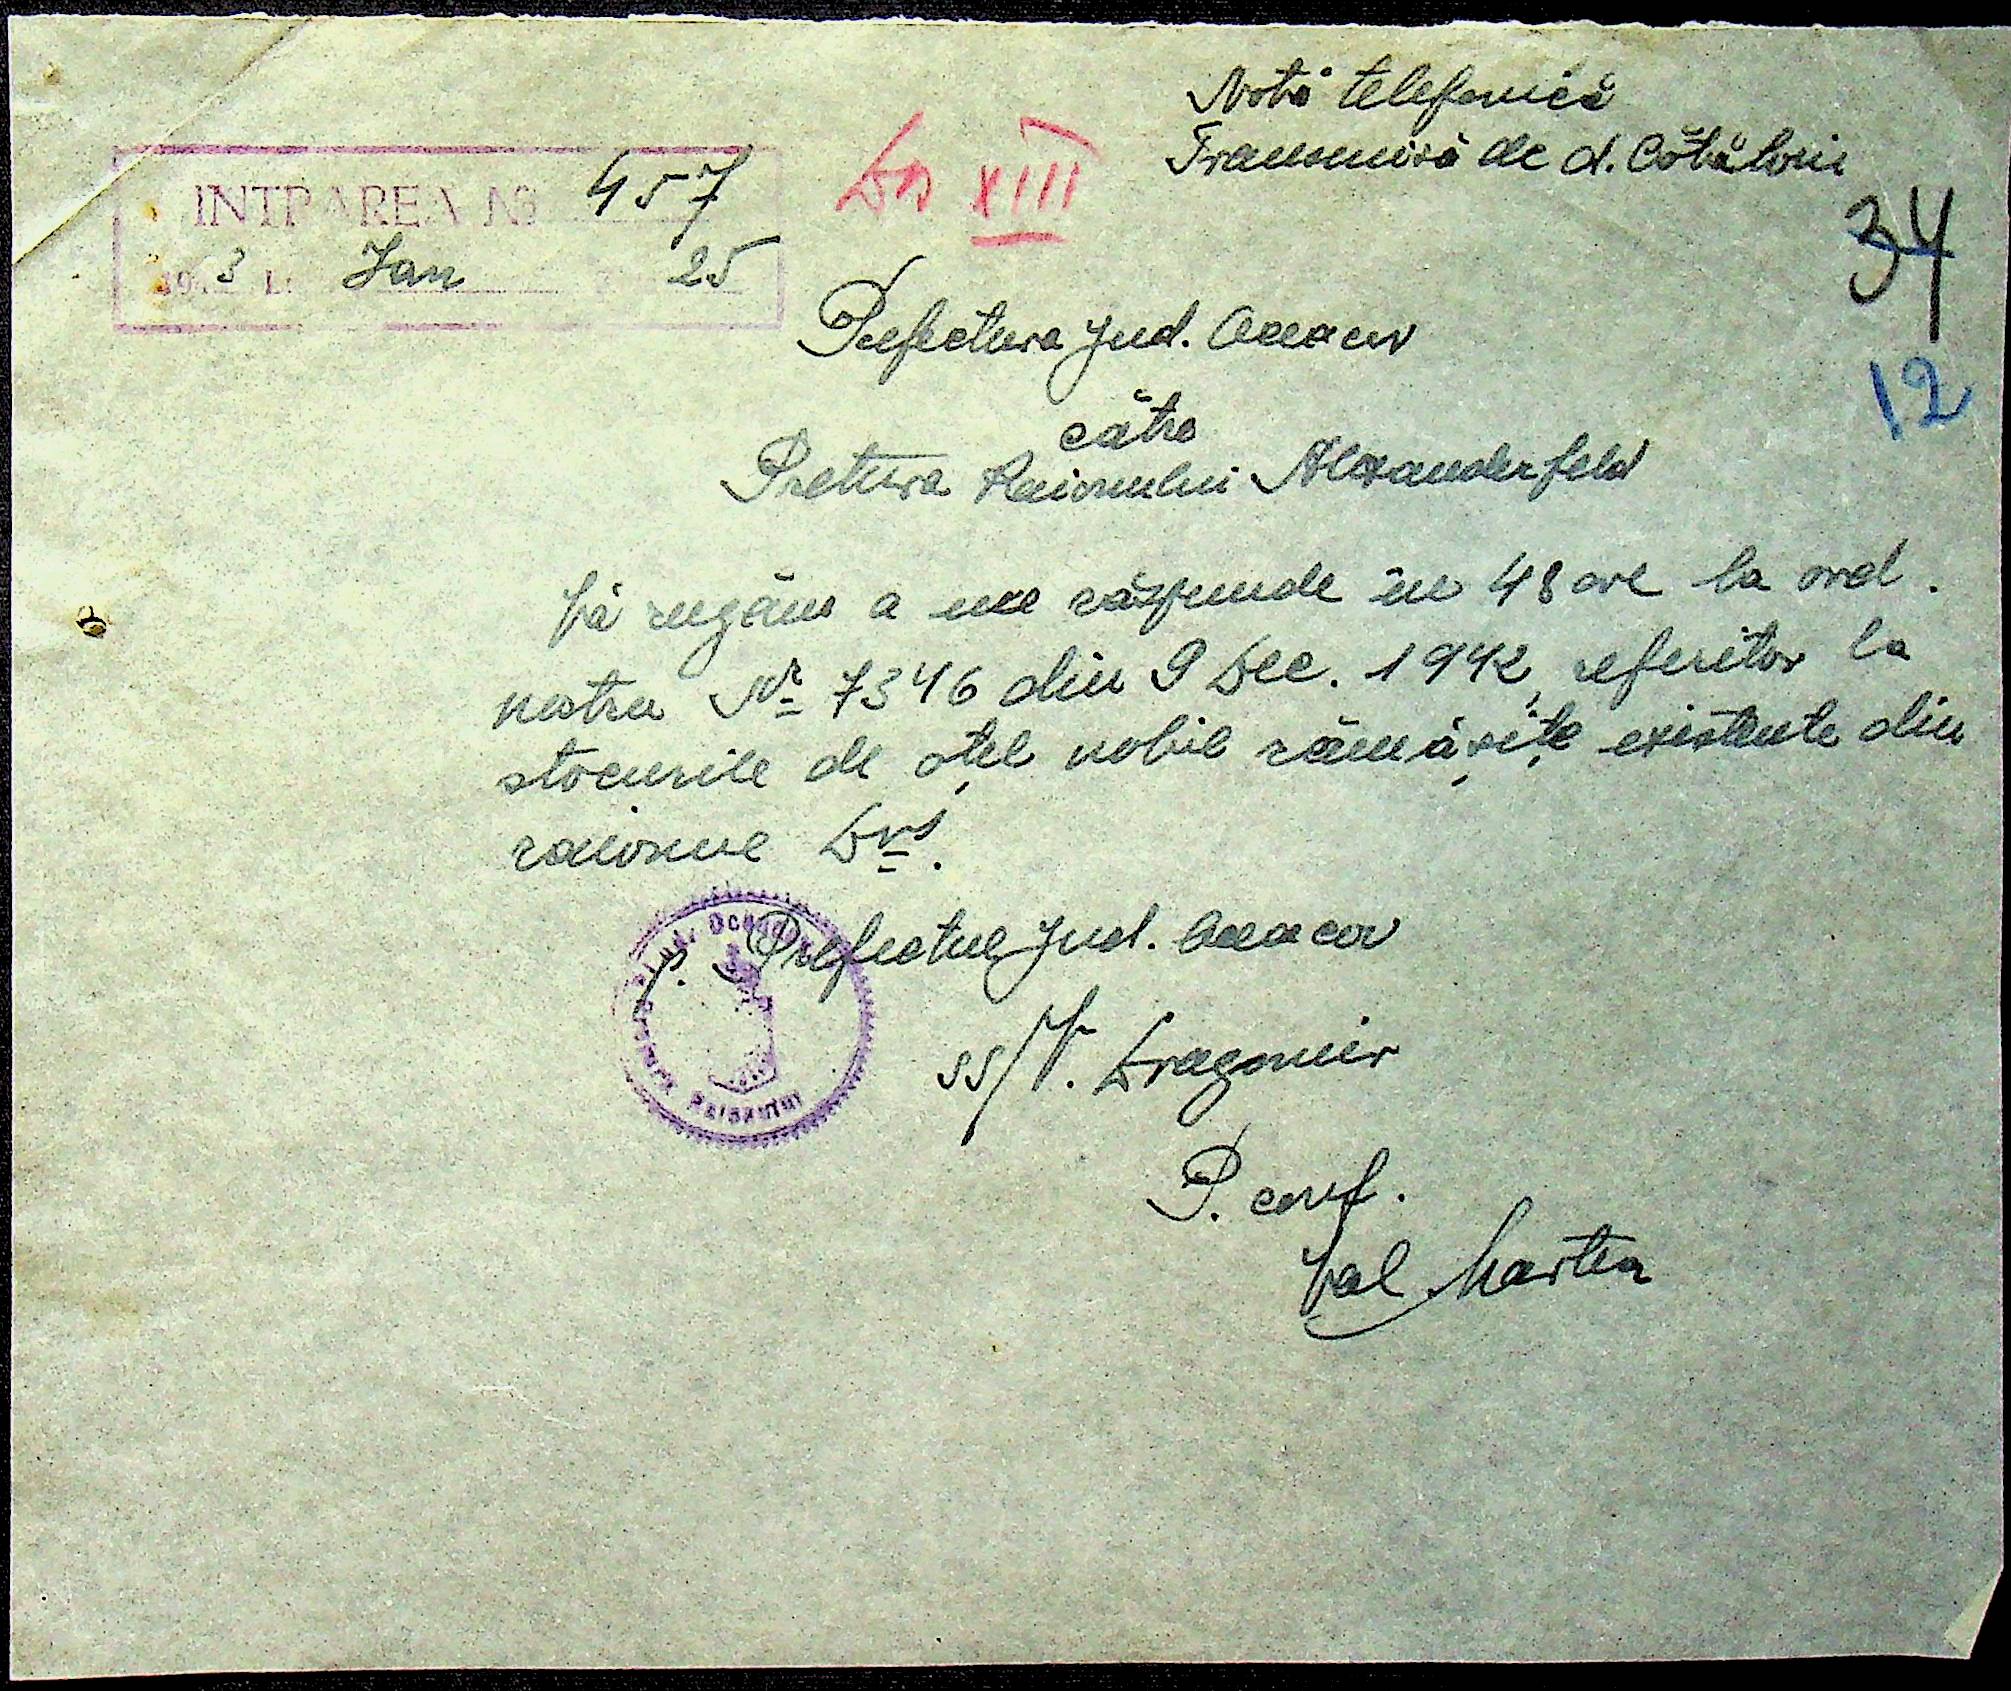 Notă telefonică
Transmisă de d. Cătăloiu
INTRAREA № 457
1943 L. Ian Z. 25
Dos XIII
34
12
Prefectura Jud. Oceacov
către
Pretura Raionului Alexanderfeld
Vă rugăm a ne răspunde în 48 ore la ord.
nostru Nr 7346 din 9 Dec. 1942, referitor la
stocurile de oțel nobil rămășițe existente din
raionul Dvs.
p. Prefectul Jud. Oceacov
ss/V. Dragomir
P. conf.
Val Martea
Jud. Oceacov
Raionului